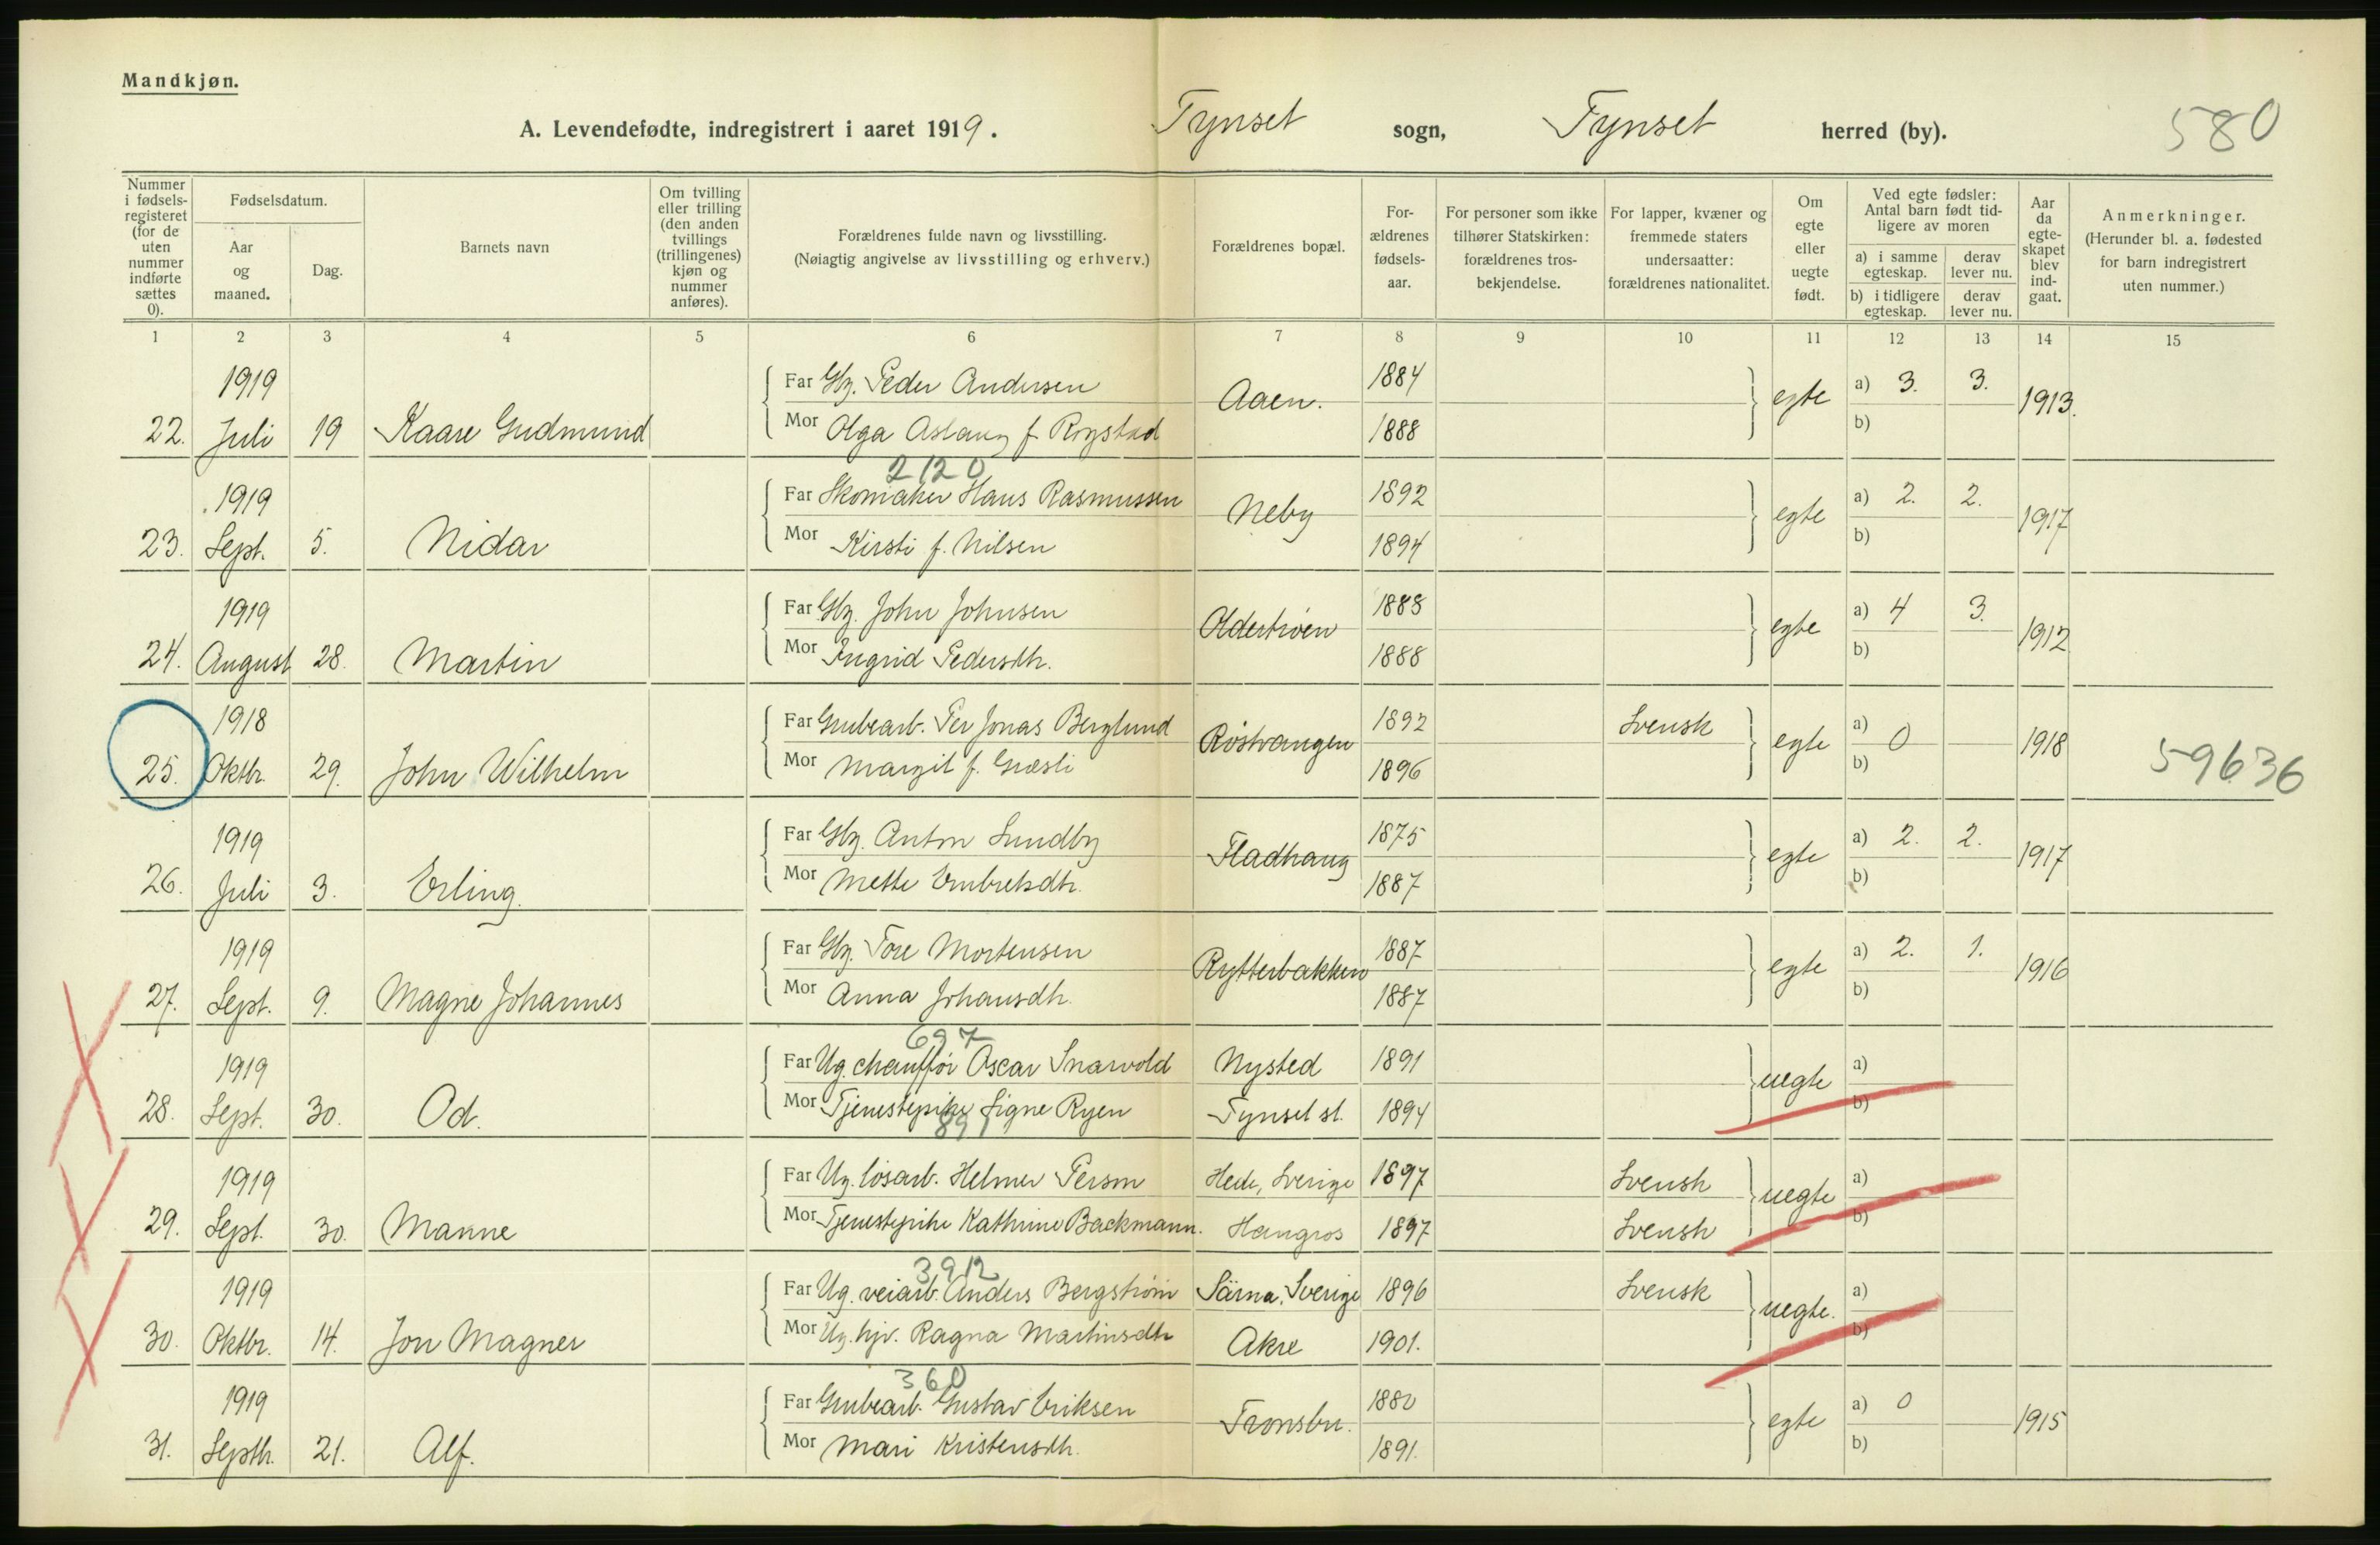 Mandkjøn.
A. Levendefødte, indregistrert i aaret 1919. Tynset sogn, Tynset herred (by). 580
Nummer i fødselsregisteret (for de uten nummer indførte sættes 0).
Fødselsdatum.
Aar og maaned.
Dag.
Barnets navn
Om tvilling eller trilling (den anden tvillings (trillingenes) kjøn og nummer anføres).
Forældrenes fulde navn og livsstilling.
(Nøiagtig angivelse av livsstilling og erhverv.)
Forældrenes bopæl.
Forældrenes fødselsaar.
For personer som ikke tilhører Statskirken: forældrenes trosbekjendelse.
For lapper, kvæner og fremmede staters undersaatter: forældrenes nationalitet.
Om egte eller uegte født.
Ved egte fødsler: Antal barn født tidligere av moren
a) i samme egteskap. derav lever nu.
b) i tidligere egteskap. derav lever nu.
Aar da egteskapet blev indgaat.
Anmerkninger.
(Herunder bl. a. fødested for barn indregistrert uten nummer.)
1 2 3 4 5 6 7 8 9 10 11 12 13 14 15
1919 Far Gbr. Peder Andersen 1884 a) 3. 3.
22. Juli 19 Kaare Gudmund Mor Olga Aslaug f. Rogstad Aaen. 1888 egte b) 1913.
2120
1919 Far Skomaker Hans Rasmussen 1892 a) 2. 2.
23. Sept. 5. Nidar Mor Kirsti f. Nilsen Neby 1894 egte b) 1917
1919 Far Gbr. John Johnsen 1888 a) 4 3.
24. August 28. Martin Mor Ingrid Pedersdtr. Oldertrøen 1888 egte b) 1912
1918 Far Grubearb. Per Jonas Berglund 1892 Svensk a) 0
25. Oktbr. 29. John Wilhelm Mor Margit f. Græsli Røstvangen 1896 egte b) 1918 59636
1919 Far Gbr. Anton Sundby 1875 a) 2. 2.
26. Juli 3. Erling. Mor Mette Embretsdtr. Fladhaug 1887 egte b) 1917
1919 Far Gbr. Tore Mortensen 1887 a) 2. 1.
27. Sept. 9. Magne Johannes Mor Anna Johansdtr. Rytterbakken 1887 egte b) 1916
697
1919 Far Ug. chauffør Oscar Snarvold Nysted 1891 a)
28. Sept. 30. Od. Mor Tjenestepike Signe Ryen Tynset st. 1894 uegte b)
891
1919 Far Ug. løsarb. Helmer Person Hede, Sverige 1897 Svensk a)
29. Sept. 30. Manne Mor Tjenestepike Kathrine Backmann. Hangros 1897 Svensk uegte b)
3912
1919 Far Ug. veiarb. Anders Bergstrøm Särna, Sverige 1896 Svensk a)
30. Oktbr. 14. Jon Magner Mor Ug. hjv. Ragna Martinsdtr Akre 1901. uegte. b)
360
1919 Far Grubearb. Gustav Eriksen 1880 a) 0
31. Septbr. 21. Alf. Mor Mari Kristensdtr. Tronsbu. 1891. egte b) 1915